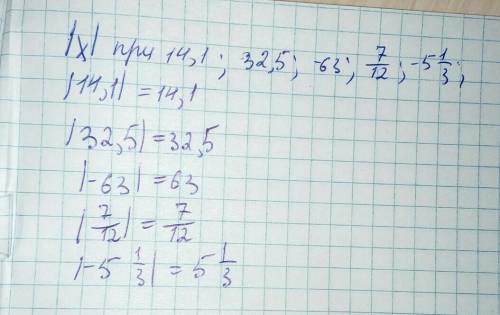 |x| при 14,1; 32,5; -63; 7/12; -5 1/3;
|14,1| = 14,1
|32,5| = 32,5
|-63| = 63
|7/12| = 7/12
|-5 1/3| = 5 1/3